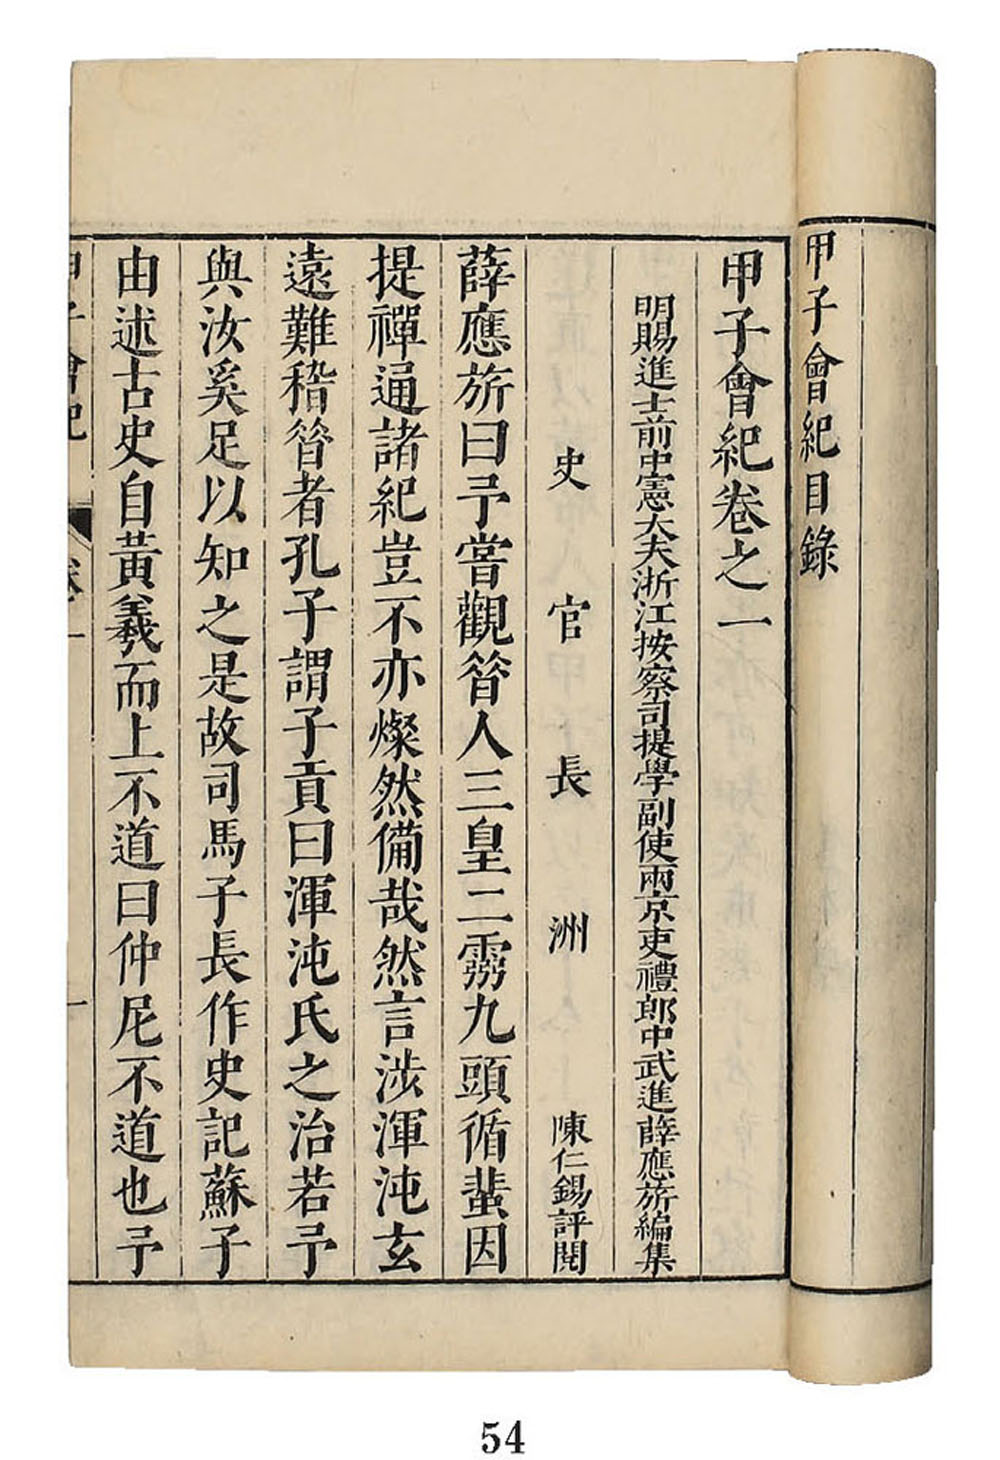 甲子會紀目錄
甲子會紀卷之一
明賜進士前中憲大夫浙江按察司提學副使兩京吏禮郎中武進薛應旂編集
史官長洲陳仁錫評閱
薛應旂曰予嘗觀昝人三皇二霛九頭循蜚因
提禪通諸紀豈不亦燦然備哉然言涉渾沌玄
遠難稽昝者孔子謂子貢曰渾沌氏之治若予
與汝奚足以知之是故司馬子長作史記蘇子
由述古史自黃羲而上不道曰仲尼不道也予
甲子會紀 卷一 一
54